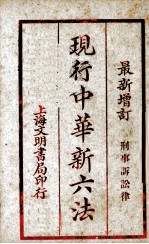 最新增訂
刑事訴訟律
現行中華新六法
上海文明書局印行